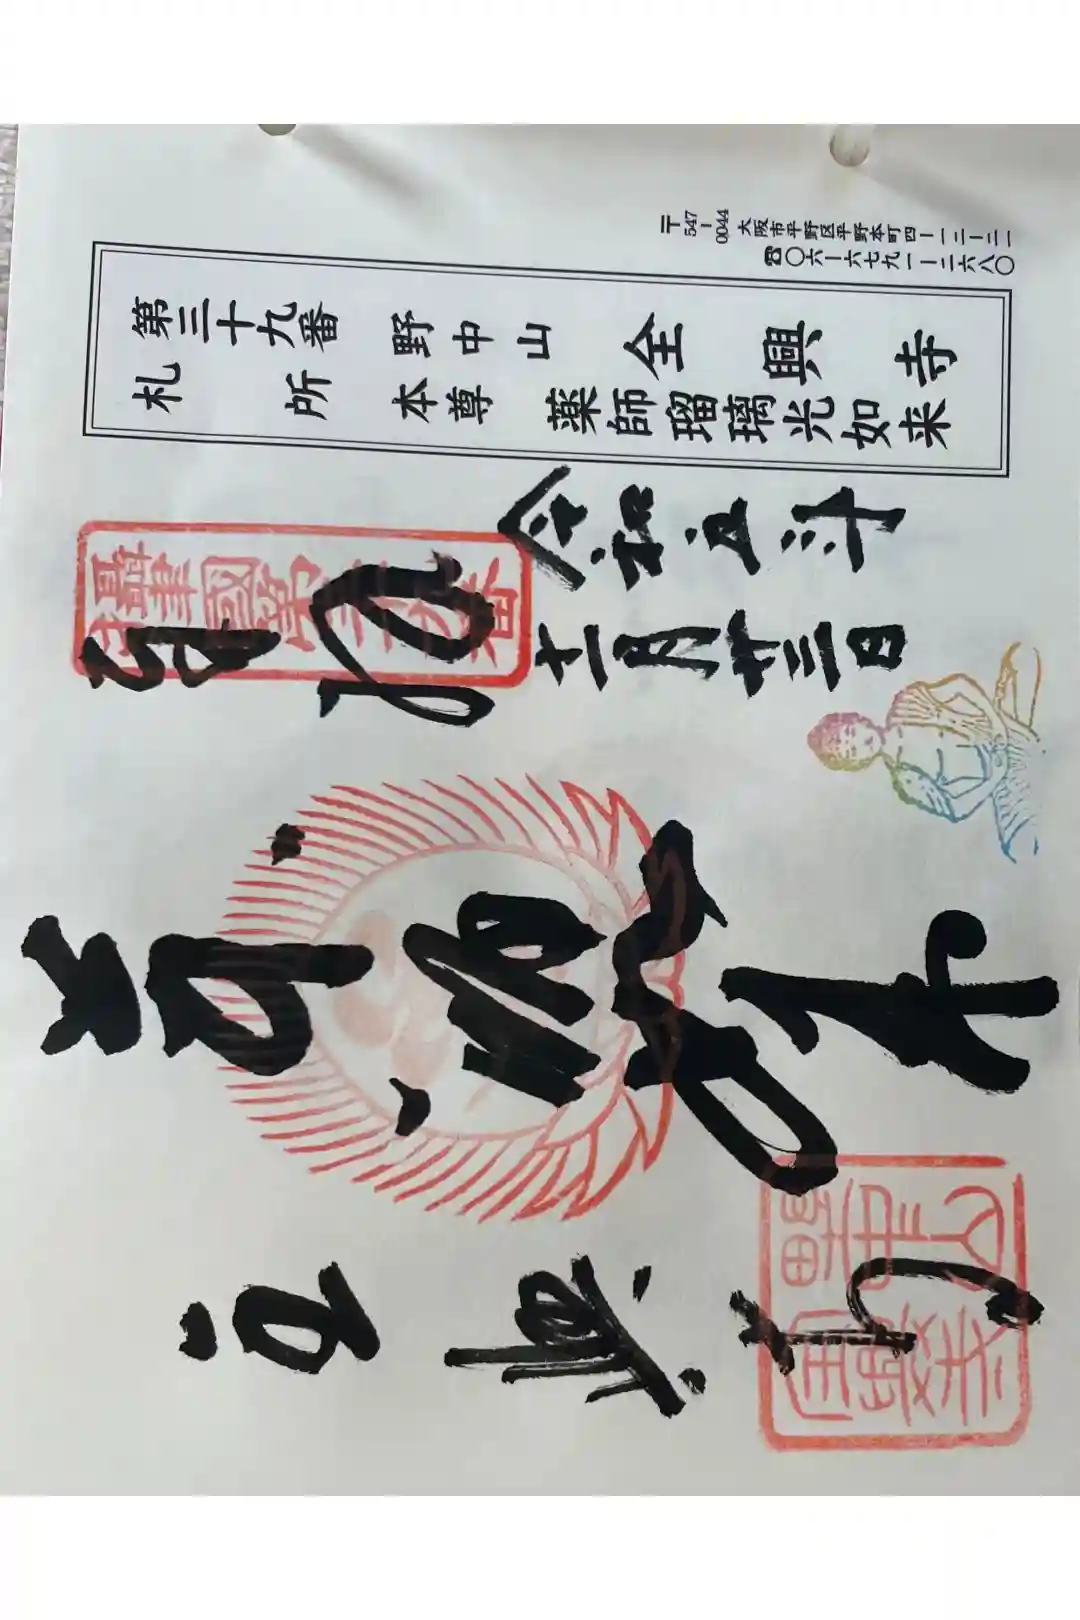 〒547-0044 大阪市平野区平野本町四ー一二ー二一
☎〇六ー六七九一ー二六八〇
第三十九番 野中山 全興寺
札所 本尊 薬師瑠璃光如来
令和五年
十一月廿三日
奉拝
攝津國第三十九番
全興寺